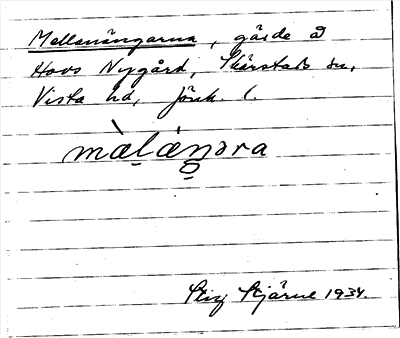 Mellanängarna, gärde å
Hovs Nygård, Skärstads sn,
Vista hd, Jönk. l.
màlánəra
Stig Stjärne 1934.